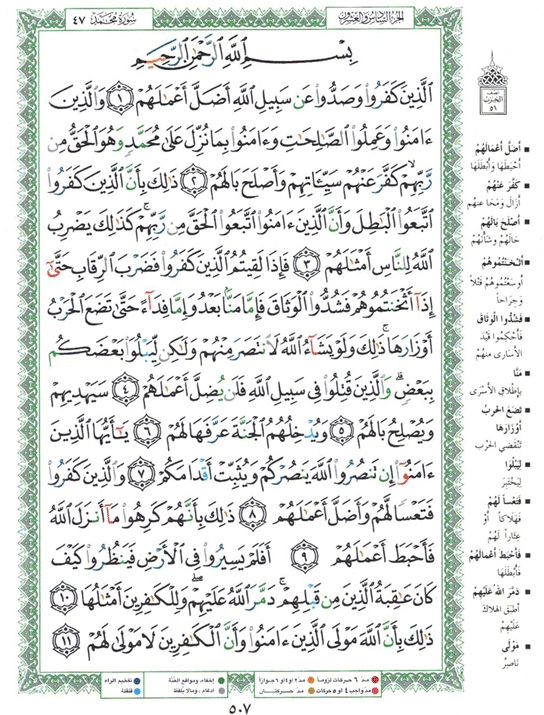 سُورَةُ مُحَمَّد ٤٧
الجُزءُ السَّادِسُ وَالعِشْرُونَ
بِسْمِ اللَّهِ الرَّحْمَٰنِ الرَّحِيمِ
الَّذِينَ كَفَرُوا وَصَدُّوا عَن سَبِيلِ اللَّهِ أَضَلَّ أَعْمَالَهُمْ ١ وَالَّذِينَ
ءَامَنُوا وَعَمِلُوا الصَّالِحَاتِ وَءَامَنُوا بِمَا نُزِّلَ عَلَىٰ مُحَمَّدٍ وَهُوَ الْحَقُّ مِن
رَّبِّهِمْ كَفَّرَ عَنْهُمْ سَيِّئَاتِهِمْ وَأَصْلَحَ بَالَهُمْ ٢ ذَٰلِكَ بِأَنَّ الَّذِينَ كَفَرُوا
اتَّبَعُوا الْبَاطِلَ وَأَنَّ الَّذِينَ ءَامَنُوا اتَّبَعُوا الْحَقَّ مِن رَّبِّهِمْ ۚ كَذَٰلِكَ يَضْرِبُ
اللَّهُ لِلنَّاسِ أَمْثَالَهُمْ ٣ فَإِذَا لَقِيتُمُ الَّذِينَ كَفَرُوا فَضَرْبَ الرِّقَابِ حَتَّىٰ
إِذَا أَثْخَنتُمُوهُمْ فَشُدُّوا الْوَثَاقَ فَإِمَّا مَنًّا بَعْدُ وَإِمَّا فِدَاءً حَتَّىٰ تَضَعَ الْحَرْبُ
أَوْزَارَهَا ۚ ذَٰلِكَ وَلَوْ يَشَاءُ اللَّهُ لَانتَصَرَ مِنْهُمْ وَلَٰكِن لِّيَبْلُوَا بَعْضَكُم
بِبَعْضٍ ۗ وَالَّذِينَ قُتِلُوا فِي سَبِيلِ اللَّهِ فَلَن يُضِلَّ أَعْمَالَهُمْ ٤ سَيَهْدِيهِمْ
وَيُصْلِحُ بَالَهُمْ ٥ وَيُدْخِلُهُمُ الْجَنَّةَ عَرَّفَهَا لَهُمْ ٦ يَا أَيُّهَا الَّذِينَ
ءَامَنُوا إِن تَنصُرُوا اللَّهَ يَنصُرْكُمْ وَيُثَبِّتْ أَقْدَامَكُمْ ٧ وَالَّذِينَ كَفَرُوا
فَتَعْسًا لَّهُمْ وَأَضَلَّ أَعْمَالَهُمْ ٨ ذَٰلِكَ بِأَنَّهُمْ كَرِهُوا مَا أَنزَلَ اللَّهُ
فَأَحْبَطَ أَعْمَالَهُمْ ٩ أَفَلَمْ يَسِيرُوا فِي الْأَرْضِ فَيَنظُرُوا كَيْفَ
كَانَ عَاقِبَةُ الَّذِينَ مِن قَبْلِهِمْ ۚ دَمَّرَ اللَّهُ عَلَيْهِمْ ۖ وَلِلْكَافِرِينَ أَمْثَالُهَا ١٠
ذَٰلِكَ بِأَنَّ اللَّهَ مَوْلَى الَّذِينَ ءَامَنُوا وَأَنَّ الْكَافِرِينَ لَا مَوْلَىٰ لَهُمْ ١١
نصف
الحزب
٥١
أضَلَّ أعْمَالَهُمْ
أَحْبَطَهَا وَأَبْطَلَهَا
كَفَّرَ عَنْهُمْ
أزَالَ وَمَحَا عنهم
أصْلَحَ بَالَهُمْ
حَالَهُمْ وشأنَهُمْ
أثْخَنْتُمُوهُمْ
أوسَعْتُمُوهُمْ قَتْلاً
وَجِرَاحاً
فَشُدُّوا الْوَثَاقَ
فَأحْكِمُوا قَيْدَ
الأسَارى منهُمْ
مَنًّا
بإطلاقِ الأسْرَى
تَضَعَ الحَربُ
أوْزَارَها
تَنْقَضِي الحَرْب
لِيَبْلُوَا
لِيَخْتَبِرَ
فَتَعْساً لَهُمْ
فَهَلاكاً أوْ
عِثَاراً لَهُمْ
فَأحْبَطَ أعمالَهُمْ
فأبْطَلَهَا
دَمَّرَ اللهُ عَلَيْهِمْ
أطْبَقَ الهَلاكَ
عَلَيْهِمْ
مَوْلَى
نَاصِرُ
مدّ ٦ حركات لزوماً
مدّ ٢ أو ٤ أو ٦ جوازاً
إخفاء، ومواقع الغُنَّة
تفخيم الراء
مدّ واجب ٤ أو ٥ حركات
مدّ حركتان
ادغام، ومالا يُلفظ
قلقلة
٥٠٧